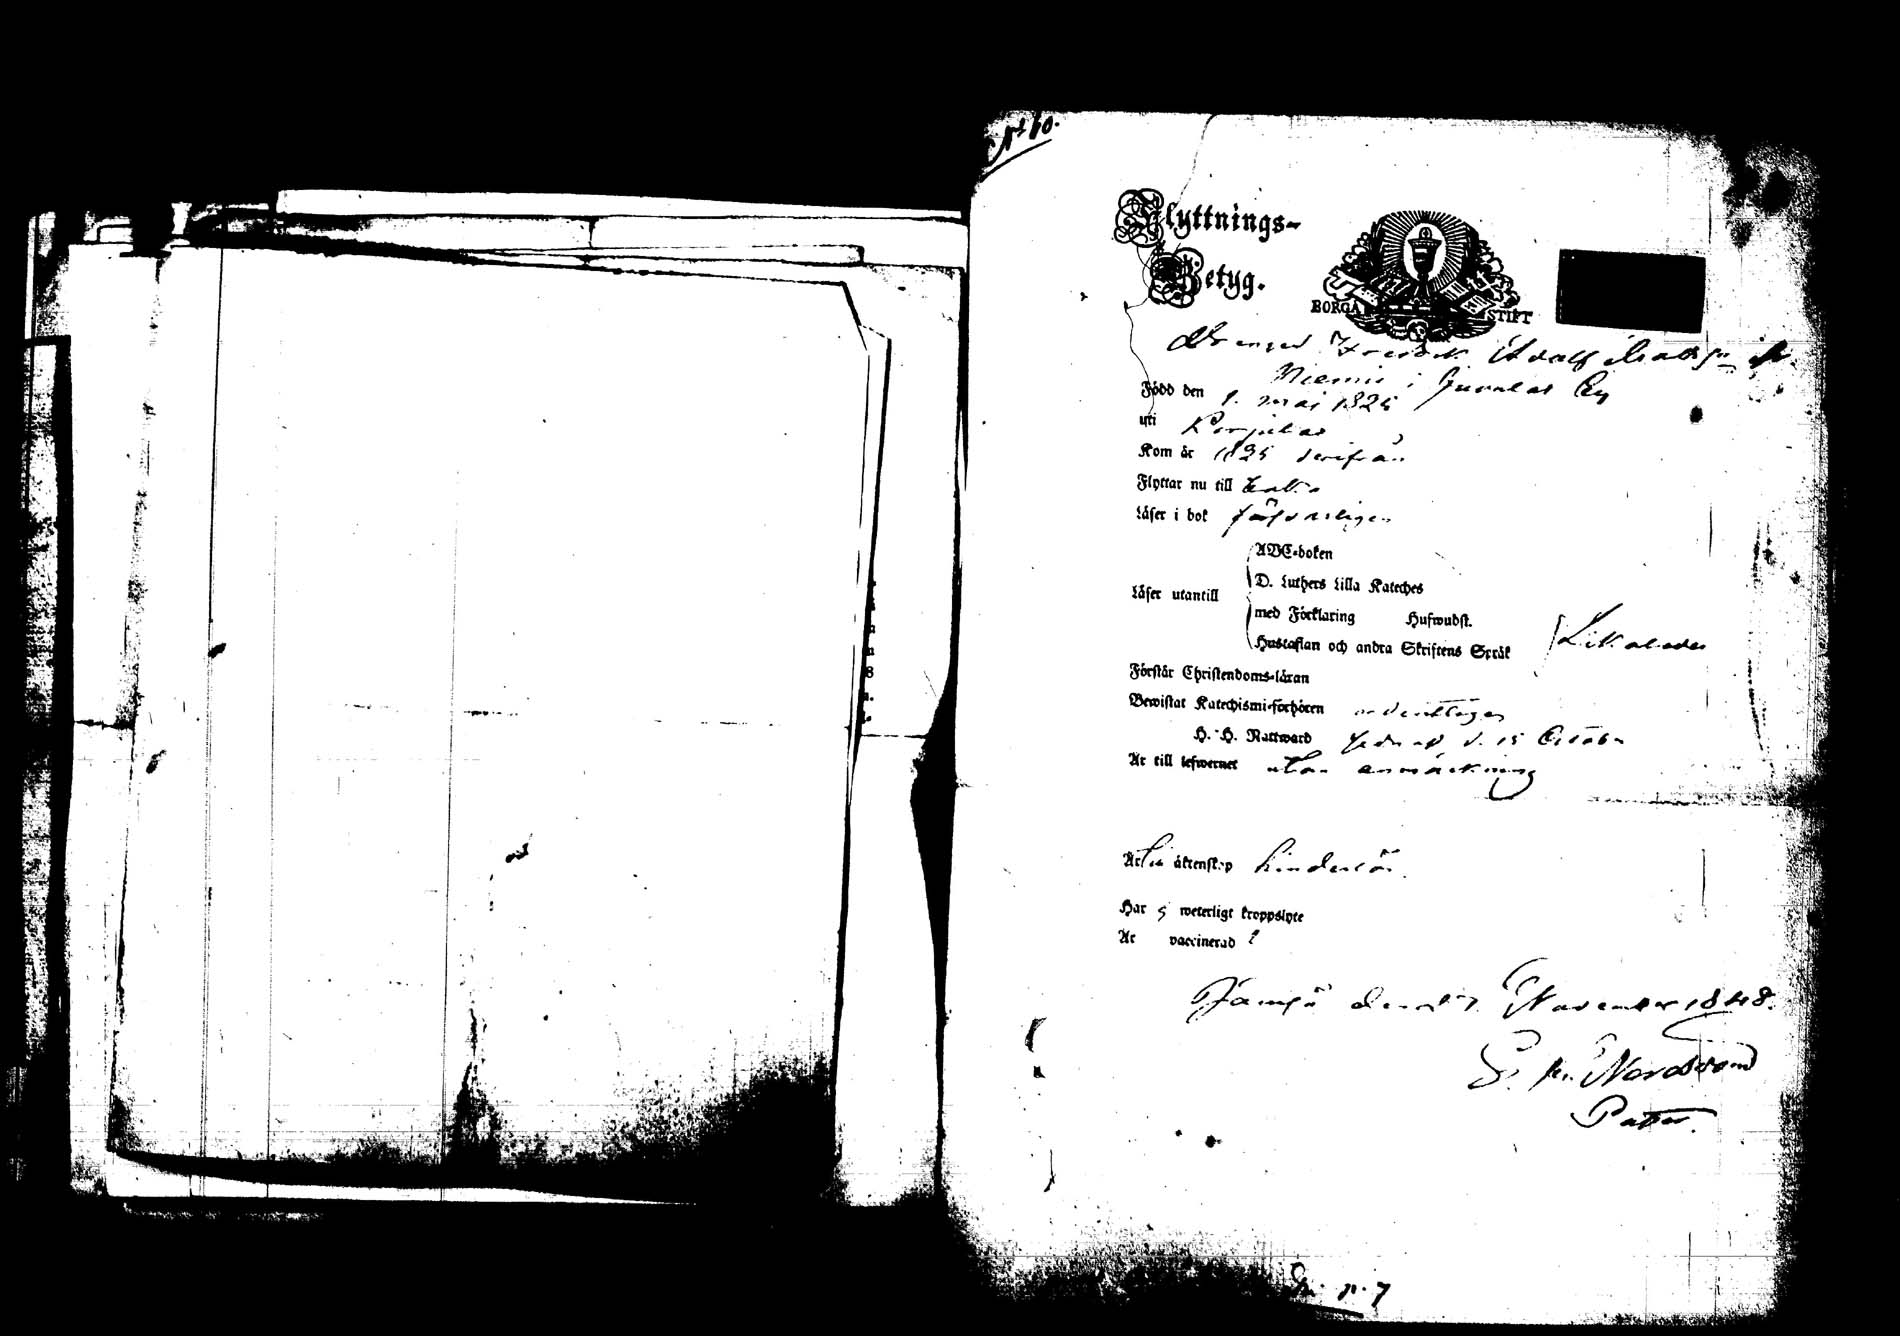 No 60.
Flyttnings-
Betyg.
BORGÅ STIFT
Drengen Fredrik Adolf
Niemis i Juvalas By
Född den 1. maj 1825
uti Korpilax
Kom år 1825 derifrån
Flyttar nu till
Läser i bok försvarligen
ABC-boken
D. Luthers Lilla Kateches
Läser utantill
med Förklaring Hufwudst.
Hustaflan och andra Skriftens Språk Likaledes
Förstår Christendoms-läran
Bewistat Katechismi-förhören ordentligen
H. H. Nattward sednast d. 15 October
Är till lefwernet utan anmärkning
Är till äktenskap hinderlös.
Har weterligt kroppslyte
Är vaccinerad
Jämsä den 7 November 1848.
Nordström
Pastor.
n. 7